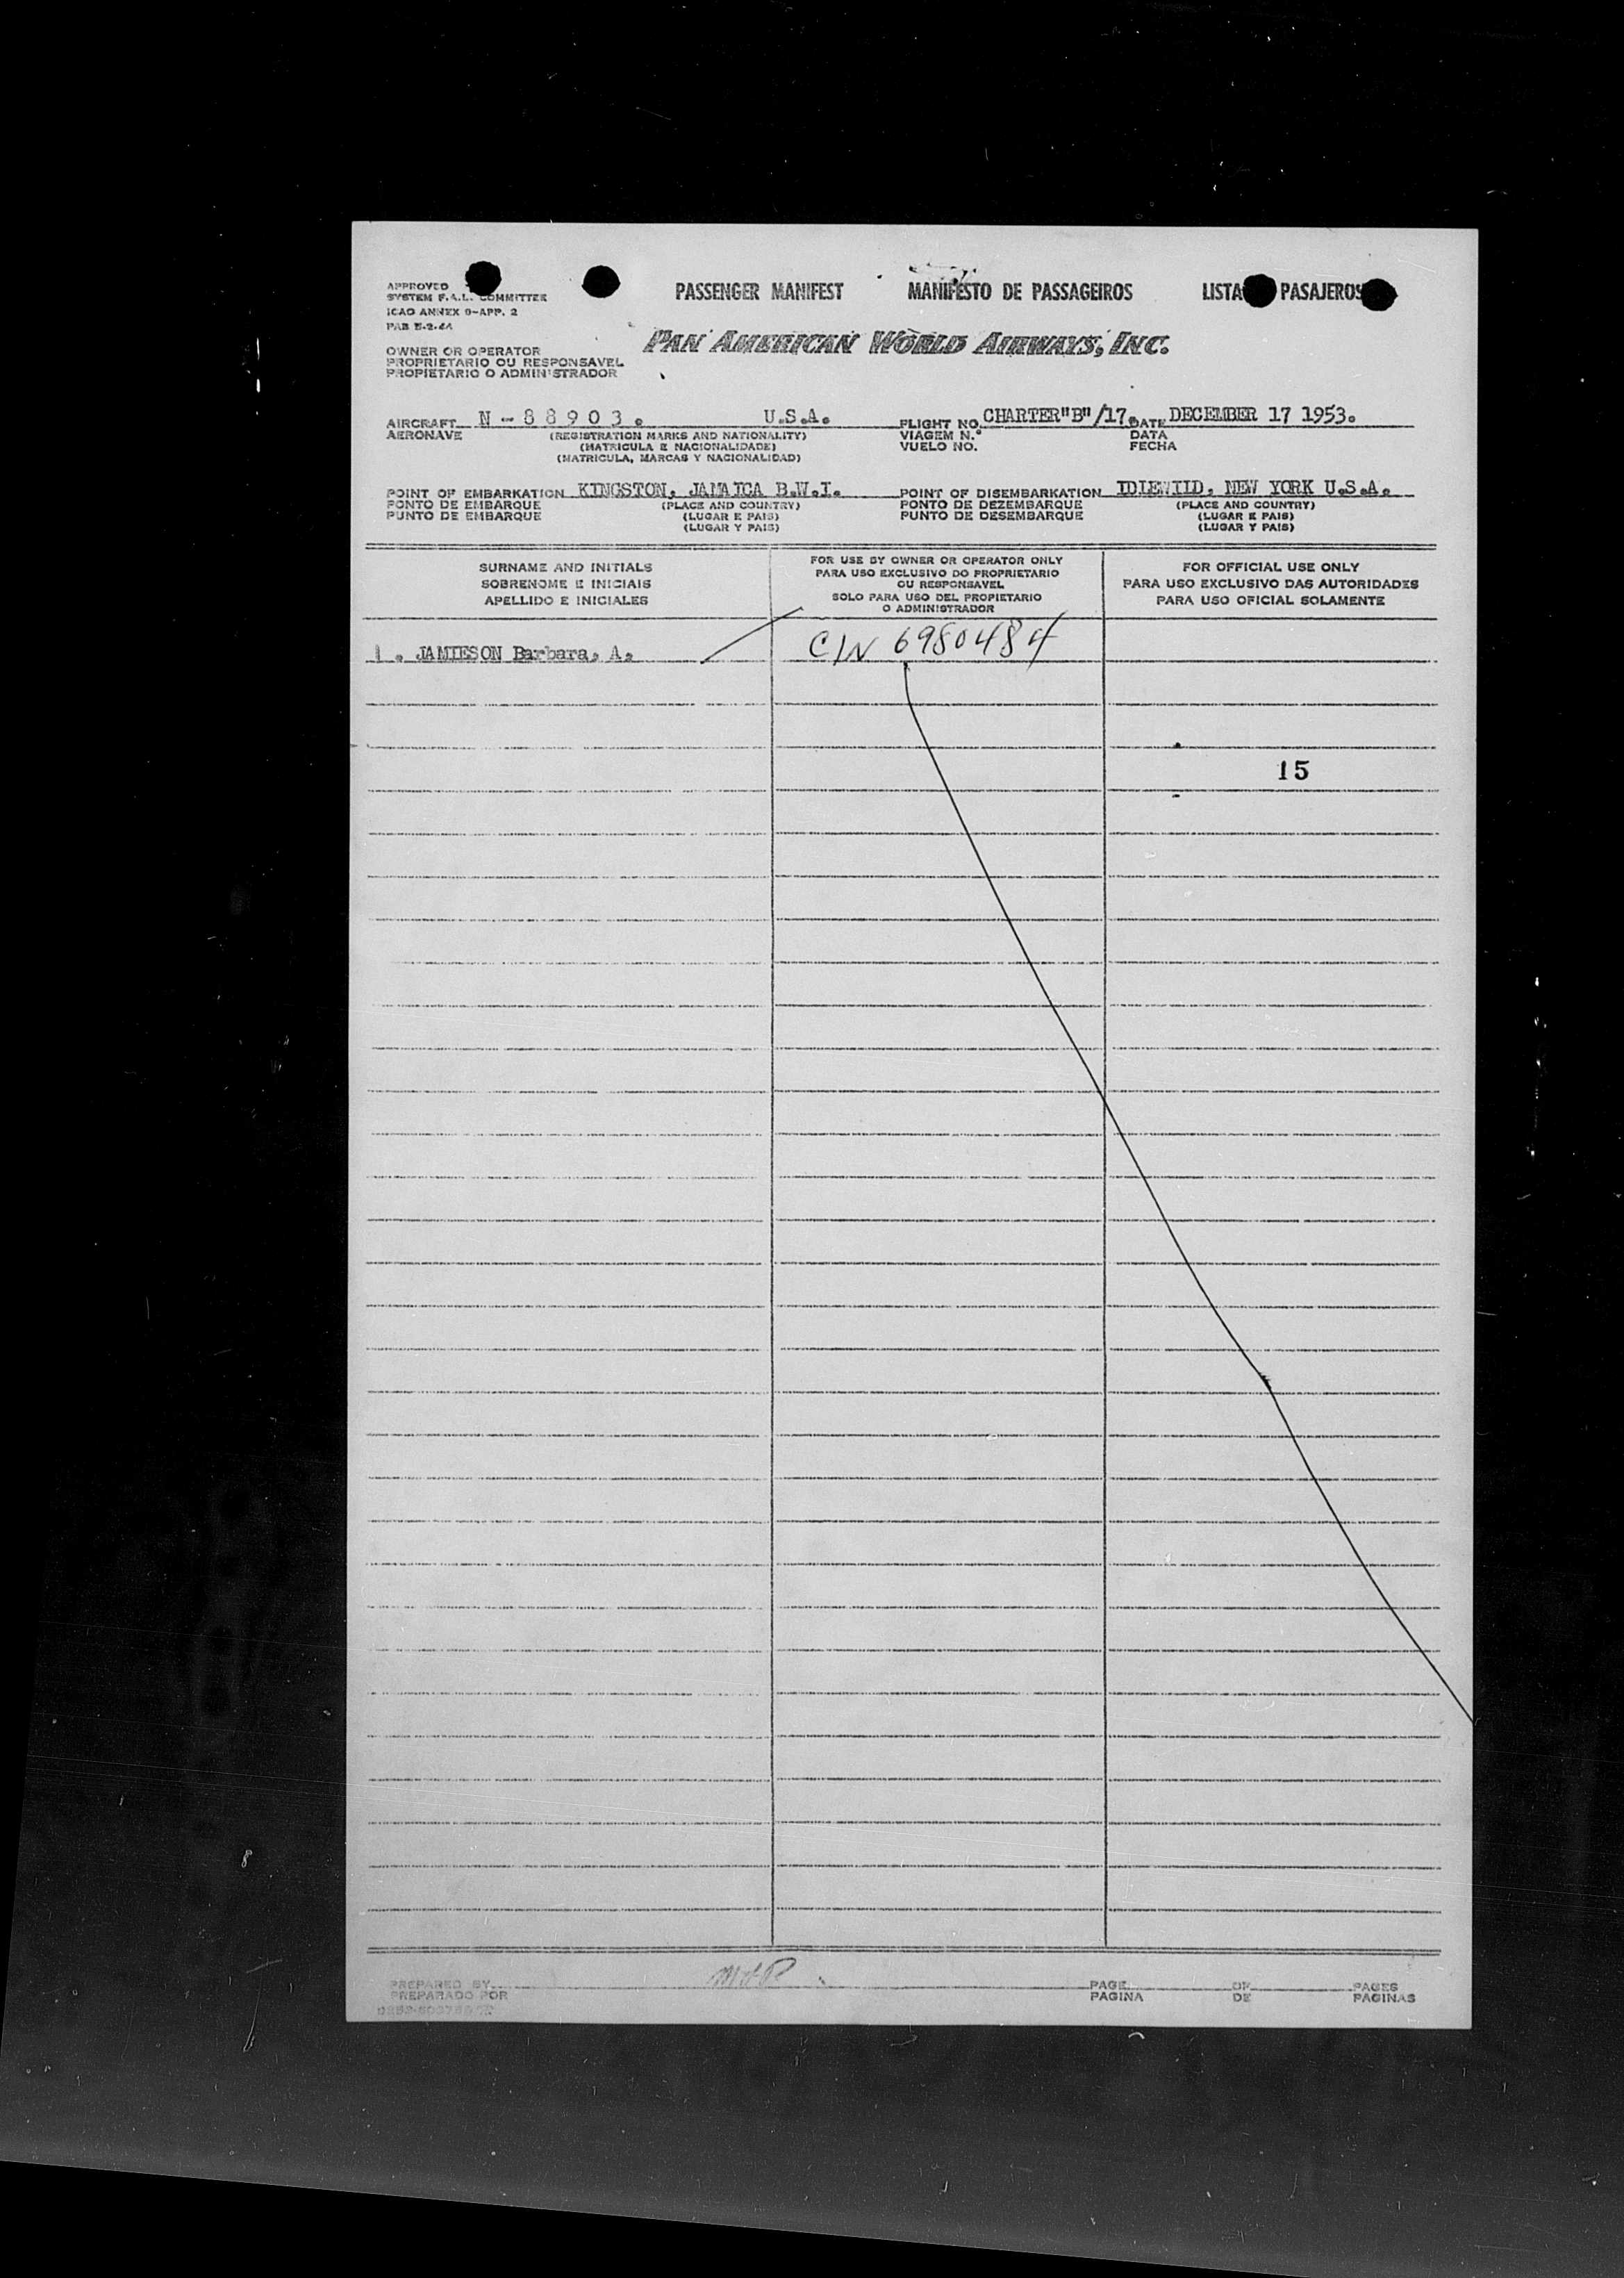 APPROVED
SYSTEM F.A.L. COMMITTEE
ICAO ANNEX 9-APP. 2
PASSENGER MANIFEST MANIFESTO DE PASSAGEIROS LISTA PASAJEROS
PAN AMERICAN WORLD AIRWAYS, INC.
OWNER OR OPERATOR
PROPRIETARIO OU RESPONSAVEL
PROPIETARIO O ADMINISTRADOR
AIRCRAFT N - 8 8 9 0 3 . U.S.A. FLIGHT NO. CHARTER"B"/17. DATE DECEMBER 17 1953.
AERONAVE (REGISTRATION MARKS AND NATIONALITY) VIAGEM N.º DATA
(MATRICULA E NACIONALIDADE) VUELO NO. FECHA
(MATRICULA, MARCAS Y NACIONALIDAD)
POINT OF EMBARKATION KINGSTON, JAMAICA B.W.I. POINT OF DISEMBARKATION IDLEWILD, NEW YORK U.S.A.
PONTO DE EMBARQUE (PLACE AND COUNTRY) PONTO DE DEZEMBARQUE (PLACE AND COUNTRY)
PUNTO DE EMBARQUE (LUGAR E PAIS) PUNTO DE DESEMBARQUE (LUGAR E PAIS)
(LUGAR Y PAIS) (LUGAR Y PAIS)
SURNAME AND INITIALS
SOBRENOME E INICIAIS
APELLIDO E INICIALES
FOR USE BY OWNER OR OPERATOR ONLY
PARA USO EXCLUSIVO DO PROPRIETARIO
OU RESPONSAVEL
SOLO PARA USO DEL PROPIETARIO
O ADMINISTRADOR
FOR OFFICIAL USE ONLY
PARA USO EXCLUSIVO DAS AUTORIDADES
PARA USO OFICIAL SOLAMENTE
1. JAMIESON Barbara, A. C/N 6980484
15
PREPARED BY PAGE OF PAGES
PREPARADO POR PAGINA DE PAGINAS